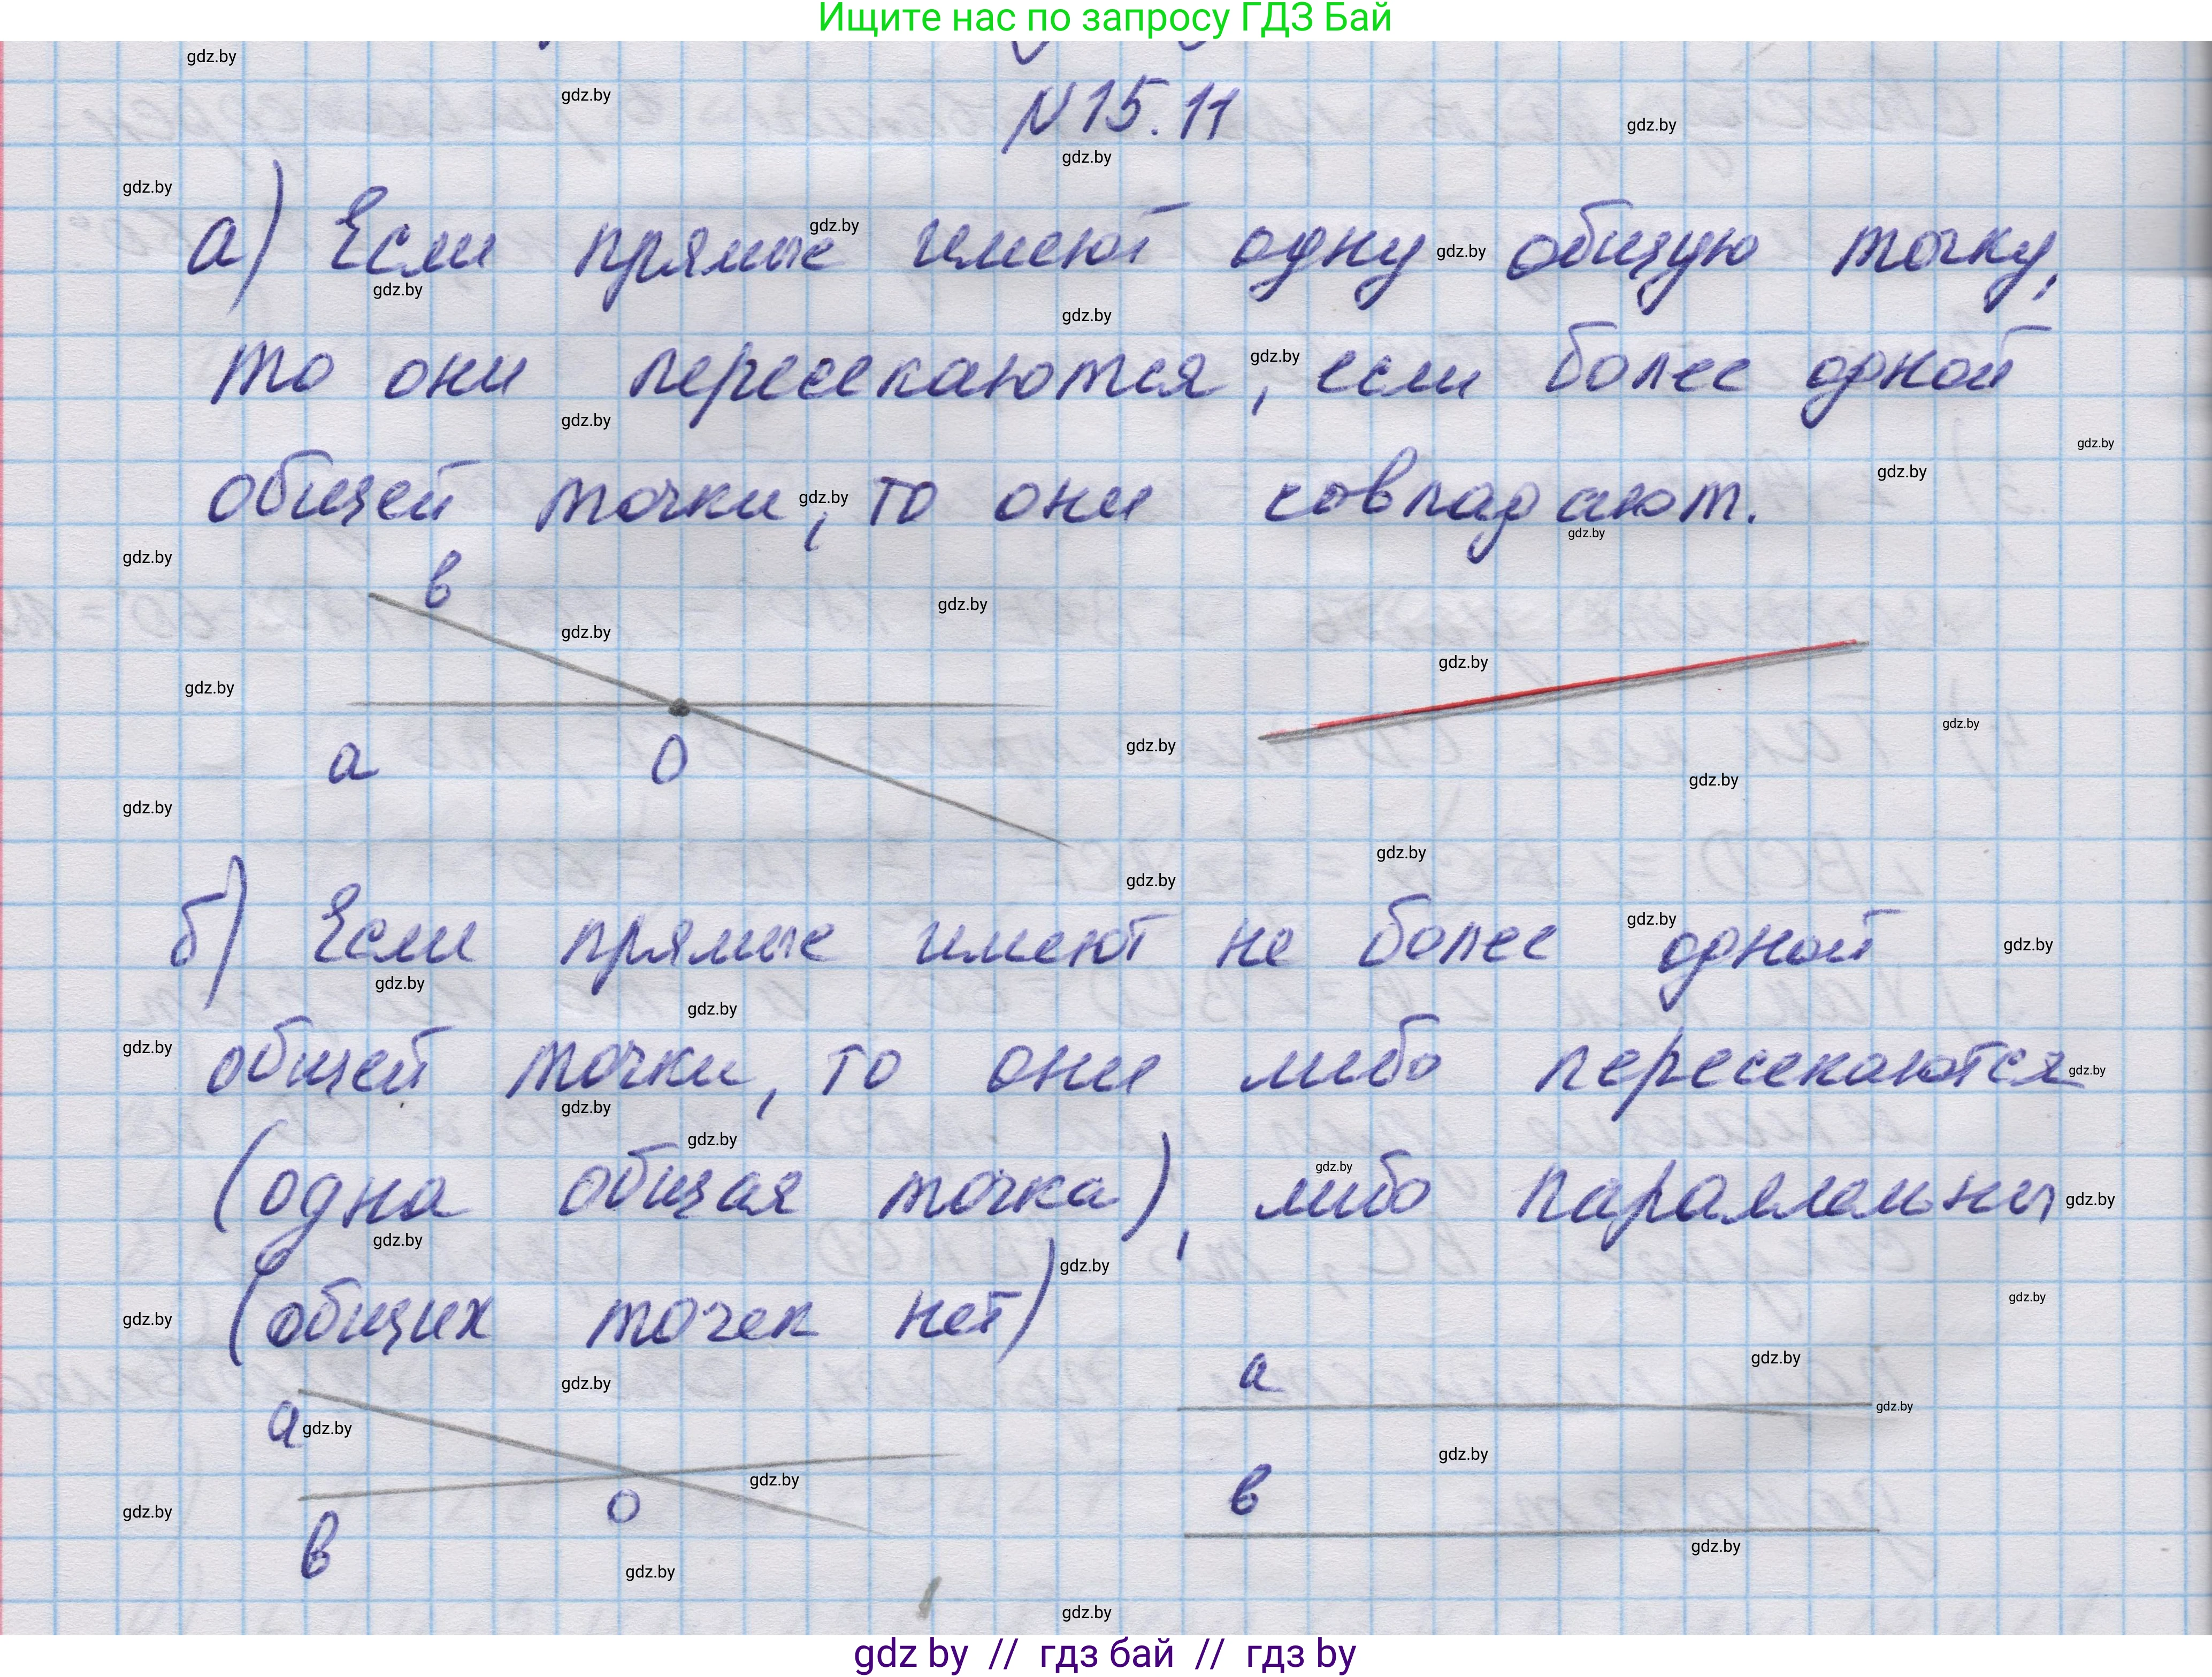 Ищите нас по запросу ГДЗ Бай
N 15.11
а) Если прямые имеют одну общую точку,
то они пересекаются, если более одной
общей точки, то они совпадают.
в
а
О
б) Если прямые имеют не более одной
общей точки, то они либо пересекаются
(одна общая точка), либо параллельны
(общих точек нет)
а
а
в
о
в
gdz.by
gdz by // гдз бай // гдз by